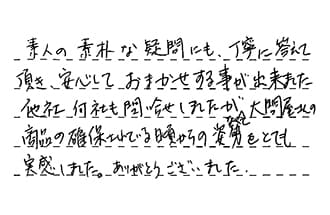 素人の素朴な疑問にも、丁寧に答えて
頂き、安心しておまかせする事が出来ました
他社 何社も問い合せしましたが、大問屋さんの
商品の確保されている日頃からの姿勢をとても
実感しました。ありがとうございました。